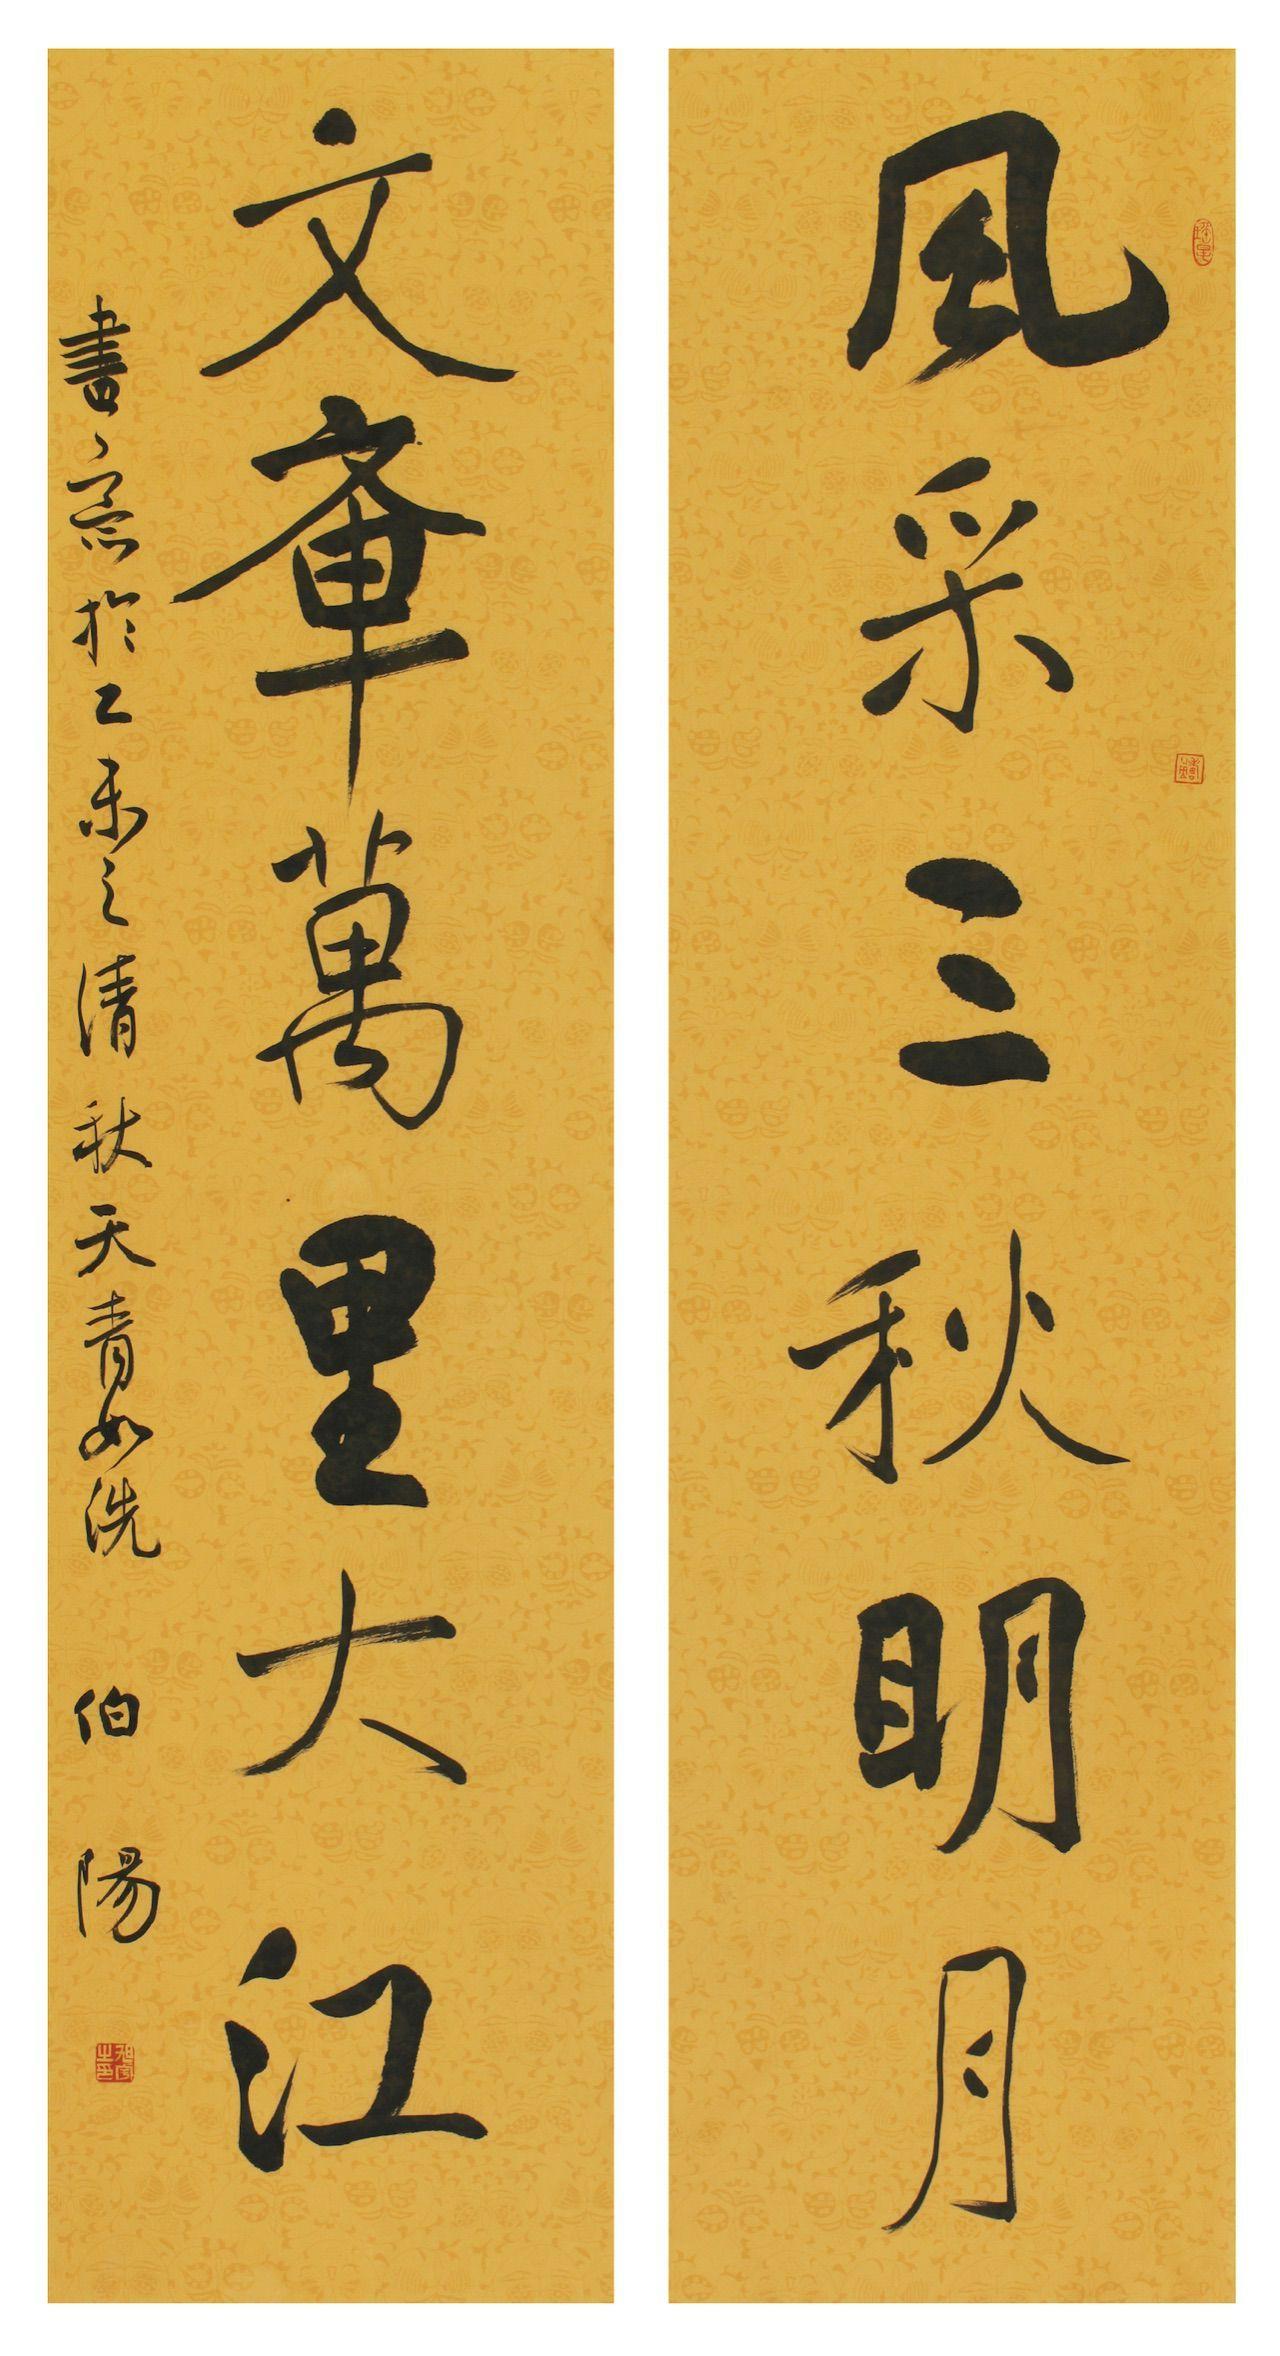 風采三秋明月
文章萬里大江
書、意於乙未之清秋天青如洗 伯陽